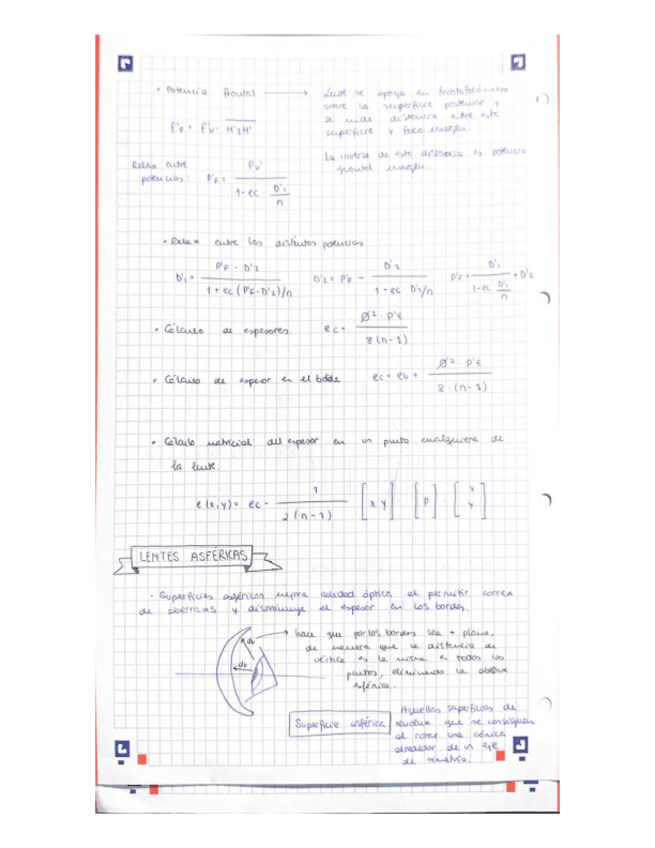 • Potencia frontal → Lente se apoya en frontofocómetro
sobre la superficie posterior y
se mide distancia entre esta
superficie y foco imagen.
f'F = f'v - H'2H'
La inversa de esta distancia es potencia
frontal imagen.
Relax entre
potencias: P'F = Pv' / 1 - ec · D'1/n
• Relax entre las distintas potencias
D'1 = P'F - D'2 / 1 + ec (P'F - D'2)/n D'2 = P'F - D'1 / 1 - ec D'1/n P'F = D'1 / 1 - ec D'1/n + D'2
• Cálculo de espesores ec = Ø² · P'E / 8 (n-1)
• Cálculo de espesor en el borde ec = eb + Ø² · P'E / 8 · (n-1)
• Cálculo matricial del espesor en un punto cualquiera de
la lente
e (x,y) = ec - 1 / 2 (n-1) [x y] · [P] · [x y]
LENTES ASFÉRICAS
• Superficies asféricas mejora calidad óptica al permitir correx
de aberrax y disminuye el espesor en los bordes.
→ hace que por los bordes sea + plana,
de manera que la distancia de
vértice es la misma en todos los
puntos, eliminando la
esférica.
dv
dv
Superficie asférica
Aquellas superficies de
revolux que se consiguen
al rotar una cónica
alrededor de un eje
de simetría.